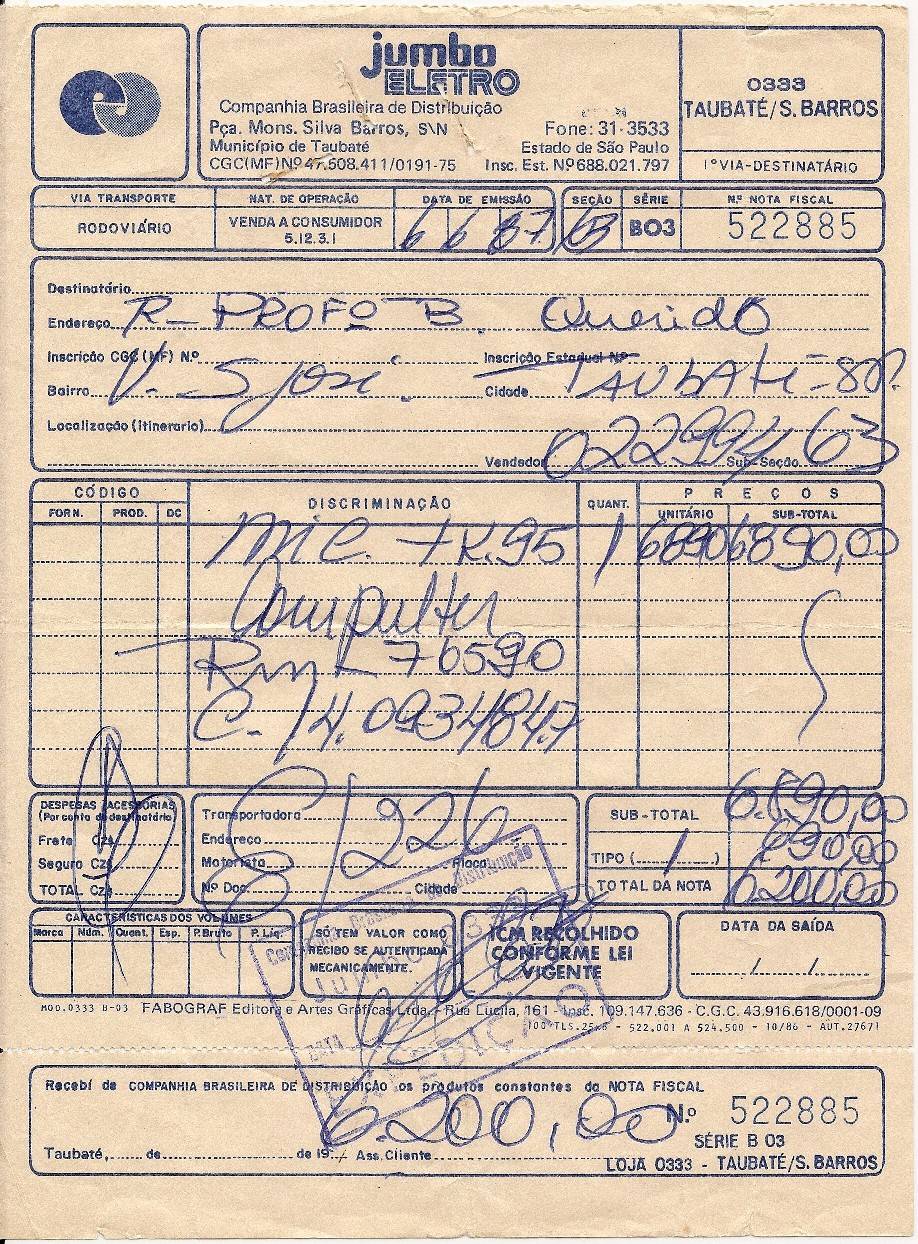 jumbo
ELETRO
Companhia Brasileira de Distribuição
Pça. Mons. Silva Barros, S\N
Fone: 31-3533
Município de Taubaté
Estado de São Paulo
CGC(MF)Nº47.508.411/0191-75
Insc. Est. Nº688.021.797
0333
TAUBATÉ/S. BARROS
1ºVIA-DESTINATÁRIO
VIA TRANSPORTE
RODOVIÁRIO
NAT. DE OPERAÇÃO
VENDA A CONSUMIDOR
5.12.3.1
DATA DE EMISSÃO
6 6 87
SEÇÃO
63
SÉRIE
BO3
N.º NOTA FISCAL
522885
Destinatário
Endereço R- PROFº B. Querido
Inscrição CGC (MF) N.º
Inscrição Estadual Nº
Bairro V. S José.
Cidade TAUBATÉ-SP.
Localização (Itinerario)
Vendedor 022994
Sub-Seção 63
CÓDIGO
FORN. PROD. DC
DISCRIMINAÇÃO
QUANT.
PREÇOS
UNITÁRIO SUB-TOTAL
Mic. TK.95 1 6890 6890,00
Computer
76590
C. 14.0934847
DESPESAS ACESSÓRIAS
(Por conta do destinatário)
Frete Cz$
Seguro Cz$
TOTAL Cz$
Transportadora
Endereço
Motorista Placa
Nº Doc. Cidade
1226
SUB-TOTAL 6.890,00
TIPO ( 1 ) 690,00
TOTAL DA NOTA 6.200,00
CARACTERÍSTICAS DOS VOLUMES
Marca Núm. Quant. Esp. P.Bruto P. Liq.
SÓ TEM VALOR COMO
RECIBO SE AUTENTICADA
MECANICAMENTE.
ICM RECOLHIDO
CONFORME LEI
VIGENTE
DATA DA SAÍDA
/ /
Companhia Brasileira de Distribuição
Jumbo
DATA
EXPEDIÇÃO
MOD.0333 B-03 FABOGRAF Editora e Artes Gráficas Ltda. - Rua Lucila, 161 - Insc. 109.147.636 - C.G.C. 43.916.618/0001-09
100 TLS.25x5 - 522.001 A 524.500 - 10/86 - AUT.27671
Recebí da COMPANHIA BRASILEIRA DE DISTRIBUIÇÃO os produtos constantes da NOTA FISCAL
6.200,00
N.º 522885
SÉRIE B 03
Taubaté, de de 19 Ass. Cliente
LOJA 0333 - TAUBATÉ/S. BARROS